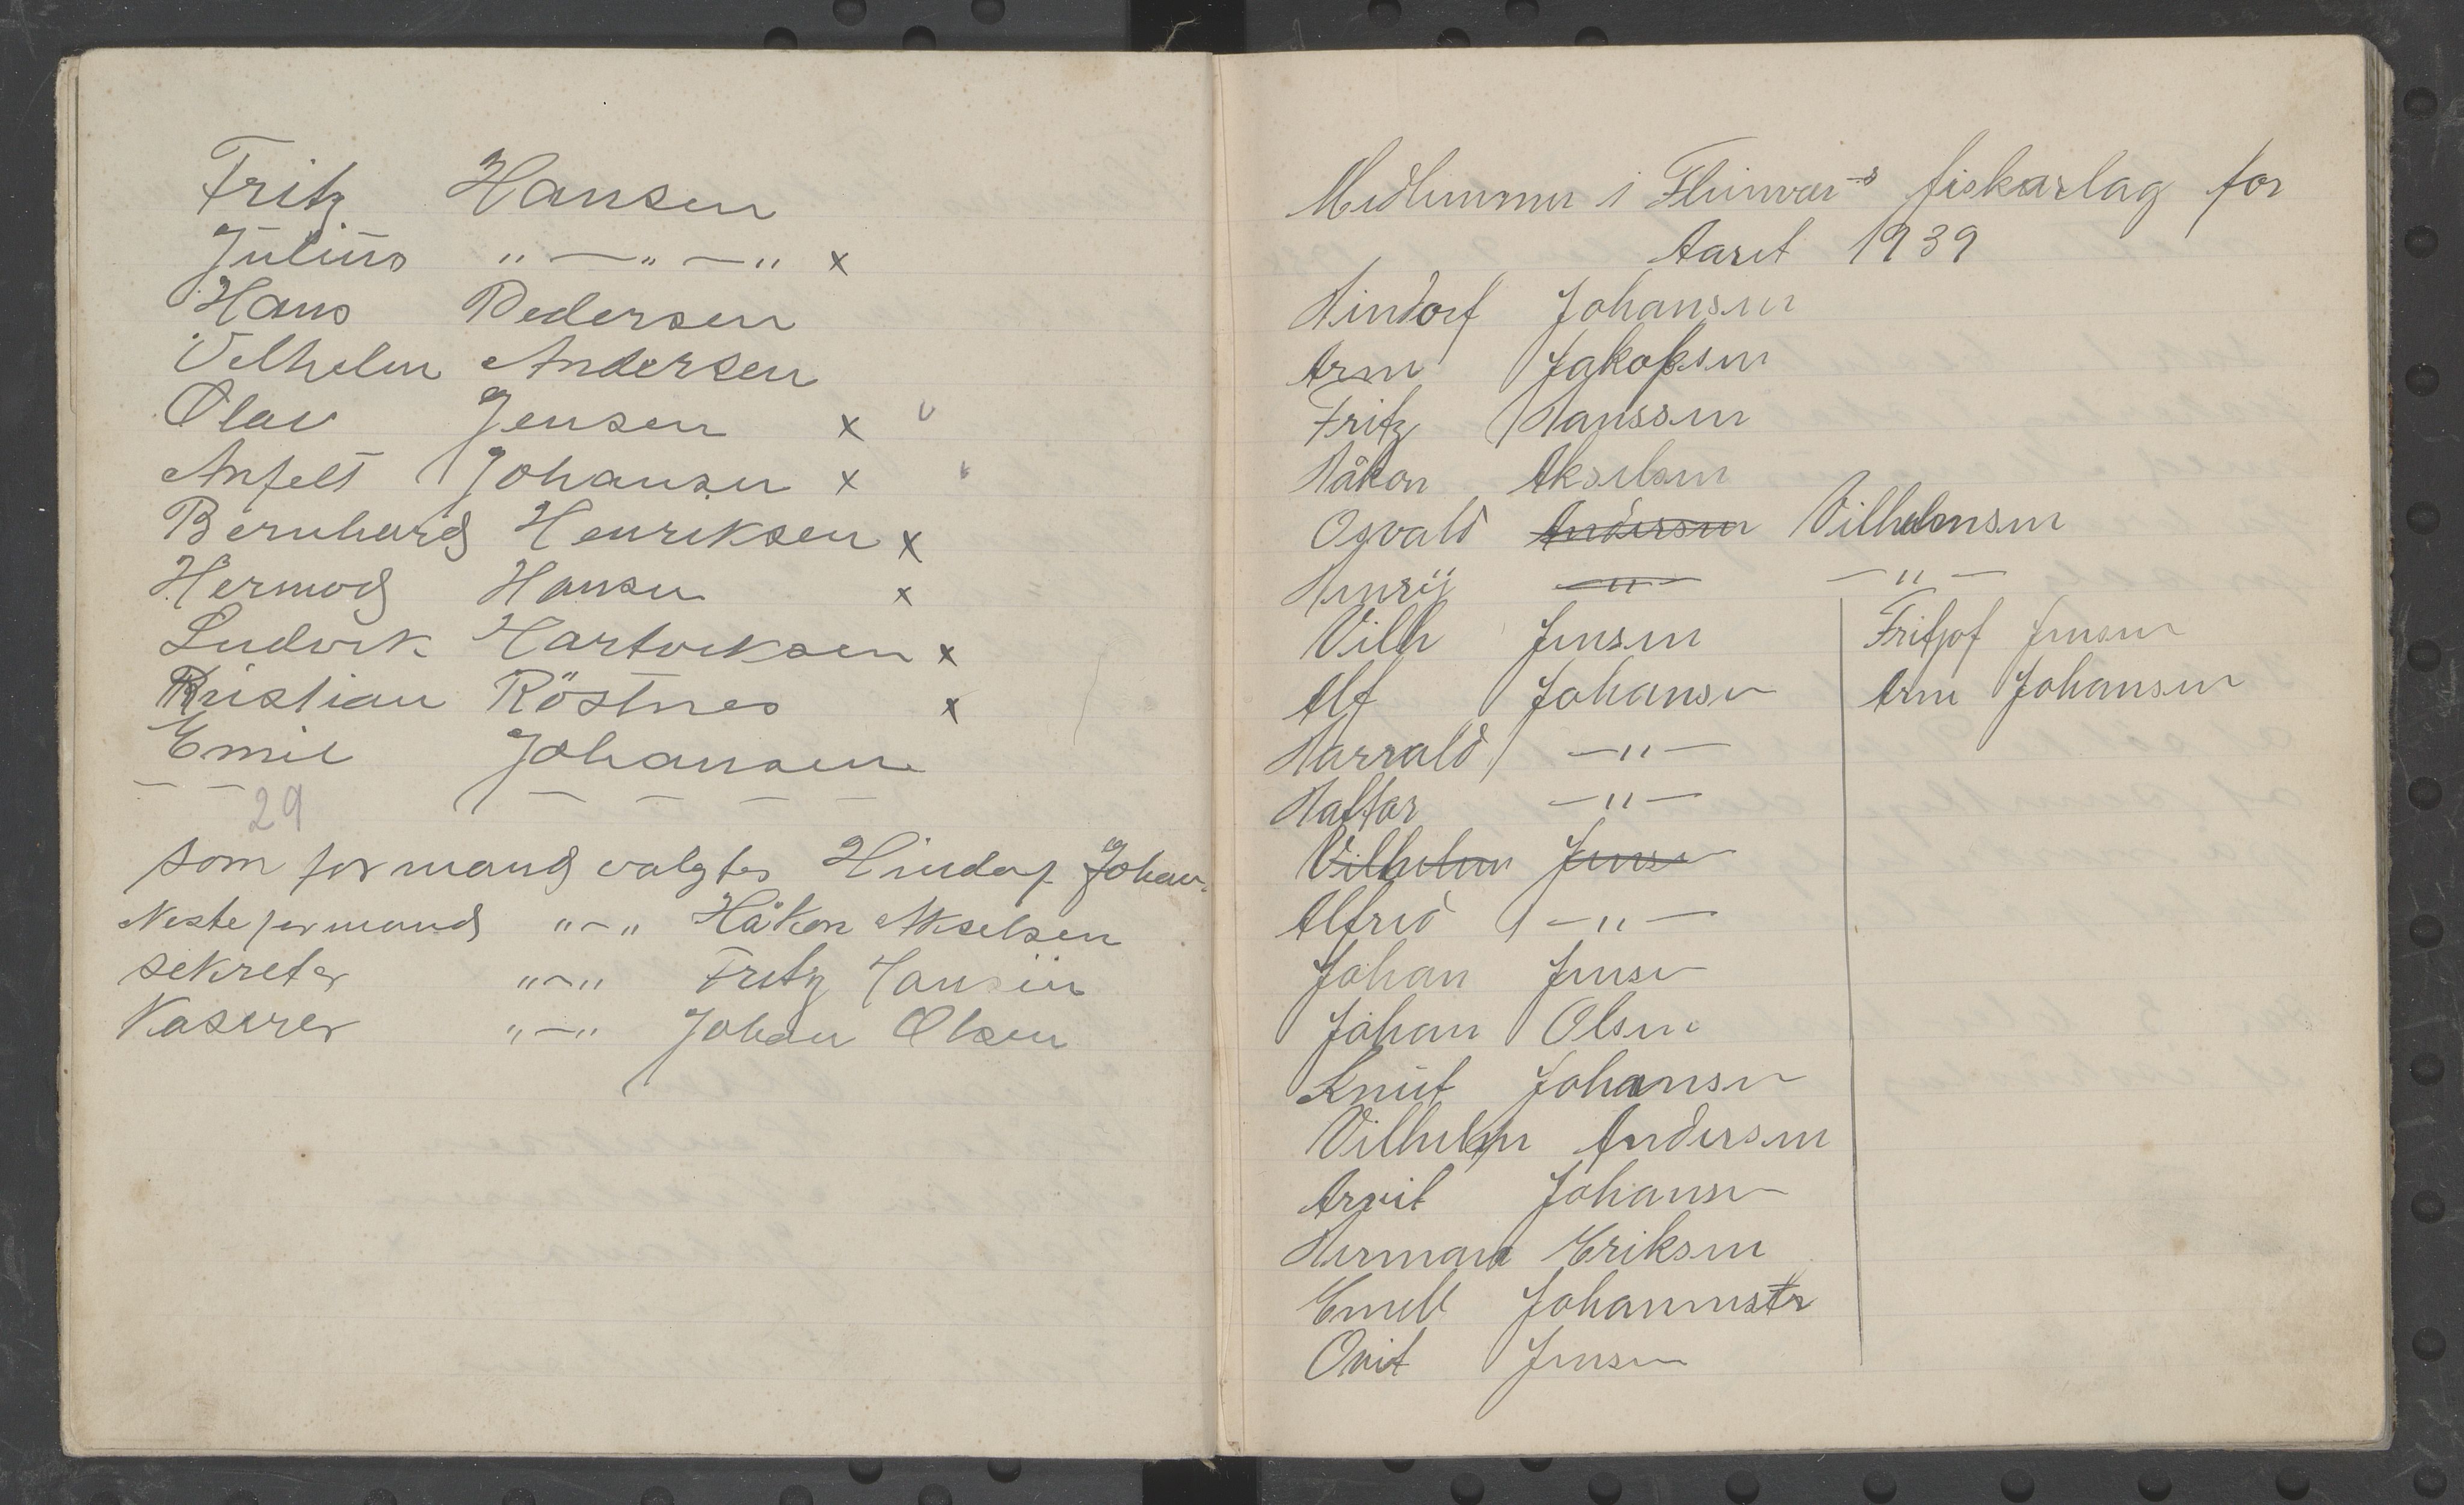 Fritz Hansen
Julius " — " — " x
Hans Pedersen
Velhelm Andersen
Olav Jensen x
Anfelt Johansen x
Bernhard Henriksen x
Hermod Hansen x
Ludvik Hartviksen x
Kristian Röstnes x
Emil Johansen
29
som formand valgtes Hindorf Johan.
Nesteformand " — " Håkon Akselsen
sekreter " — " Fritz Hansen
Kaserer " — " Johan Olsen
Medlemmer i Fleinvær-s fiskarlag for
Aaret 1939
Hindorf Johansen
Arne Jakobsen
Fritz Hanssen
Håkon Akselsen
Osvald Andersen Vilhelmsen
Henrij — " — — " —
Vilh Jensen
Alf Johansen
Harrald — " —
Halfar — " —
Vilhelm Jensen
Alfred — " —
Johan Jensen
Johan Olsen
Knut Johansen
Vilhelm Andersen
Arvit Johansen
Herman Eriksen
Emell Johannestr
Ovit Jensen
Fritjof Jensen
Arne Johansen